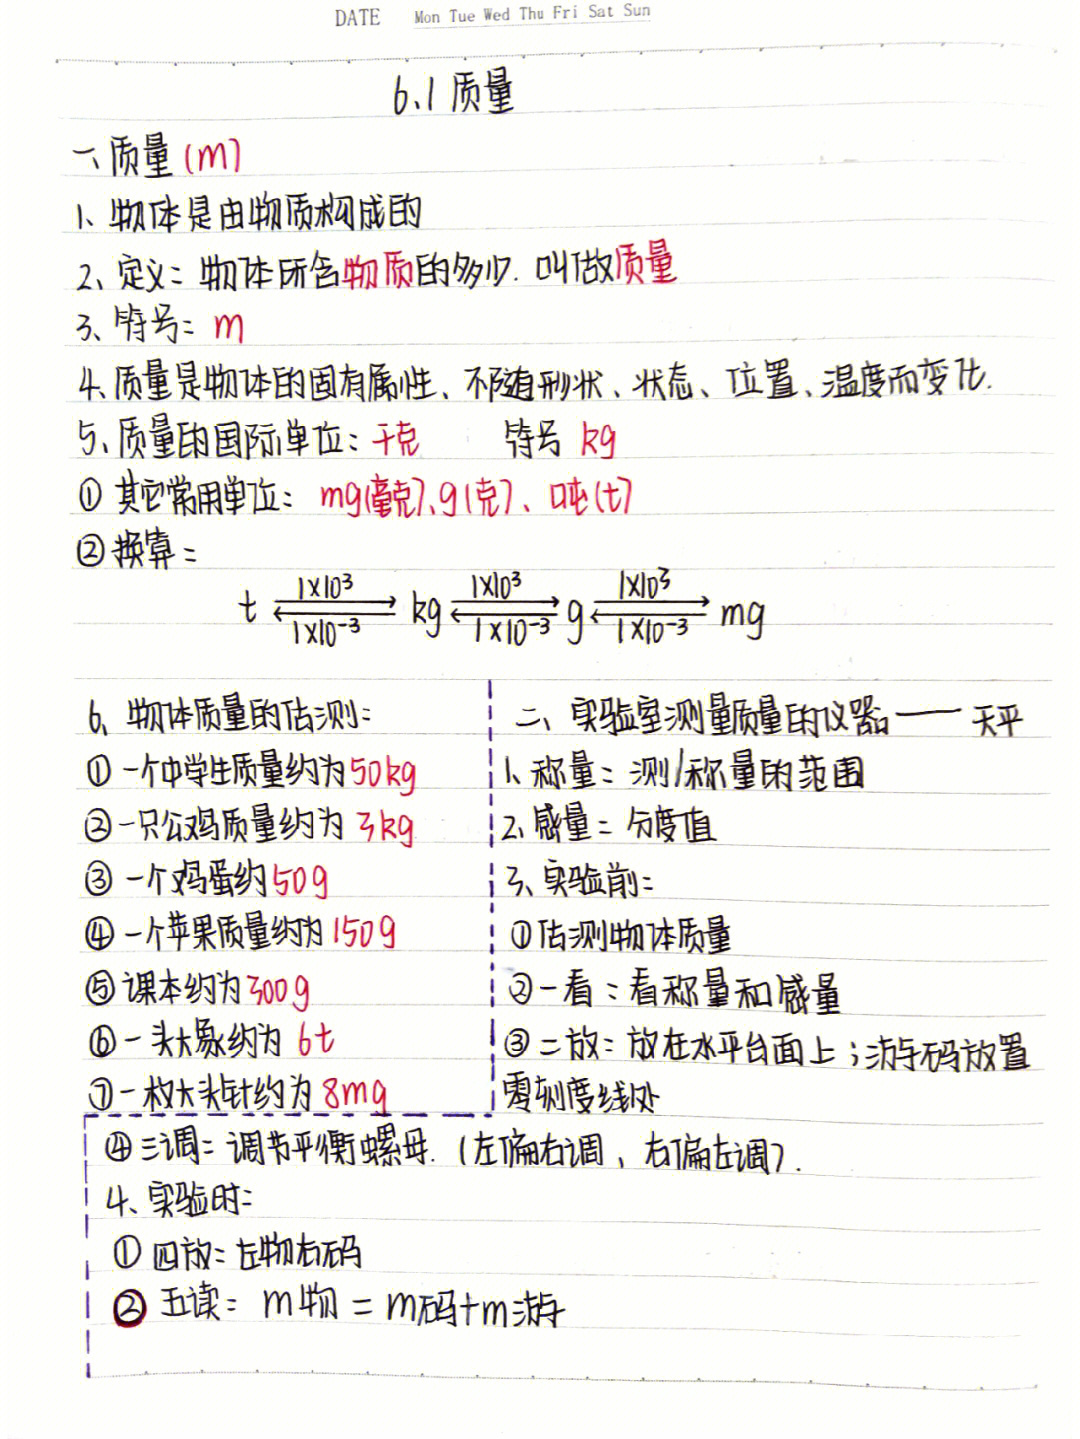 DATE Mon Tue Wed Thu Fri Sat Sun
6.1 质量
一、质量(m)
1、物体是由物质构成的
2、定义：物体所含物质的多少.叫做质量
3、符号：m
4、质量是物体的固有属性、不随形状、状态、位置、温度而变化.
5、质量的国际单位：千克 符号 kg
① 其它常用单位：mg(毫克)、g(克)、吨(t)
②换算：
1×10³ 1×10³ 1×10³
t kg g mg
1×10⁻³ 1×10⁻³ 1×10⁻³
6、物体质量的估测：
① 一个中学生质量约为50kg
②一只公鸡质量约为 3kg
③ 一个鸡蛋约50g
④ 一个苹果质量约为150g
⑤ 课本约为300g
⑥ 一头大象约为 6t
⑦一枚大头针约为 8mg
二、实验室测量质量的仪器——天平
1、称量：测/称量的范围
2、感量：分度值
3、实验前：
①估测物体质量
②一看：看称量和感量
③二放：放在水平台面上；游码放置
零刻度线处
④三调：调节平衡螺母.(左偏右调，右偏左调).
4、实验时：
① 四放：左物右码
② 五读：m物=m码+m游